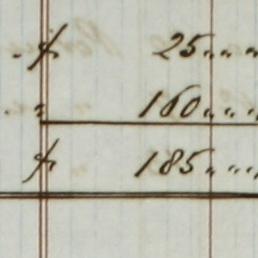 ƒ 25 " " "
" 160 " " "
ƒ 185 " " "